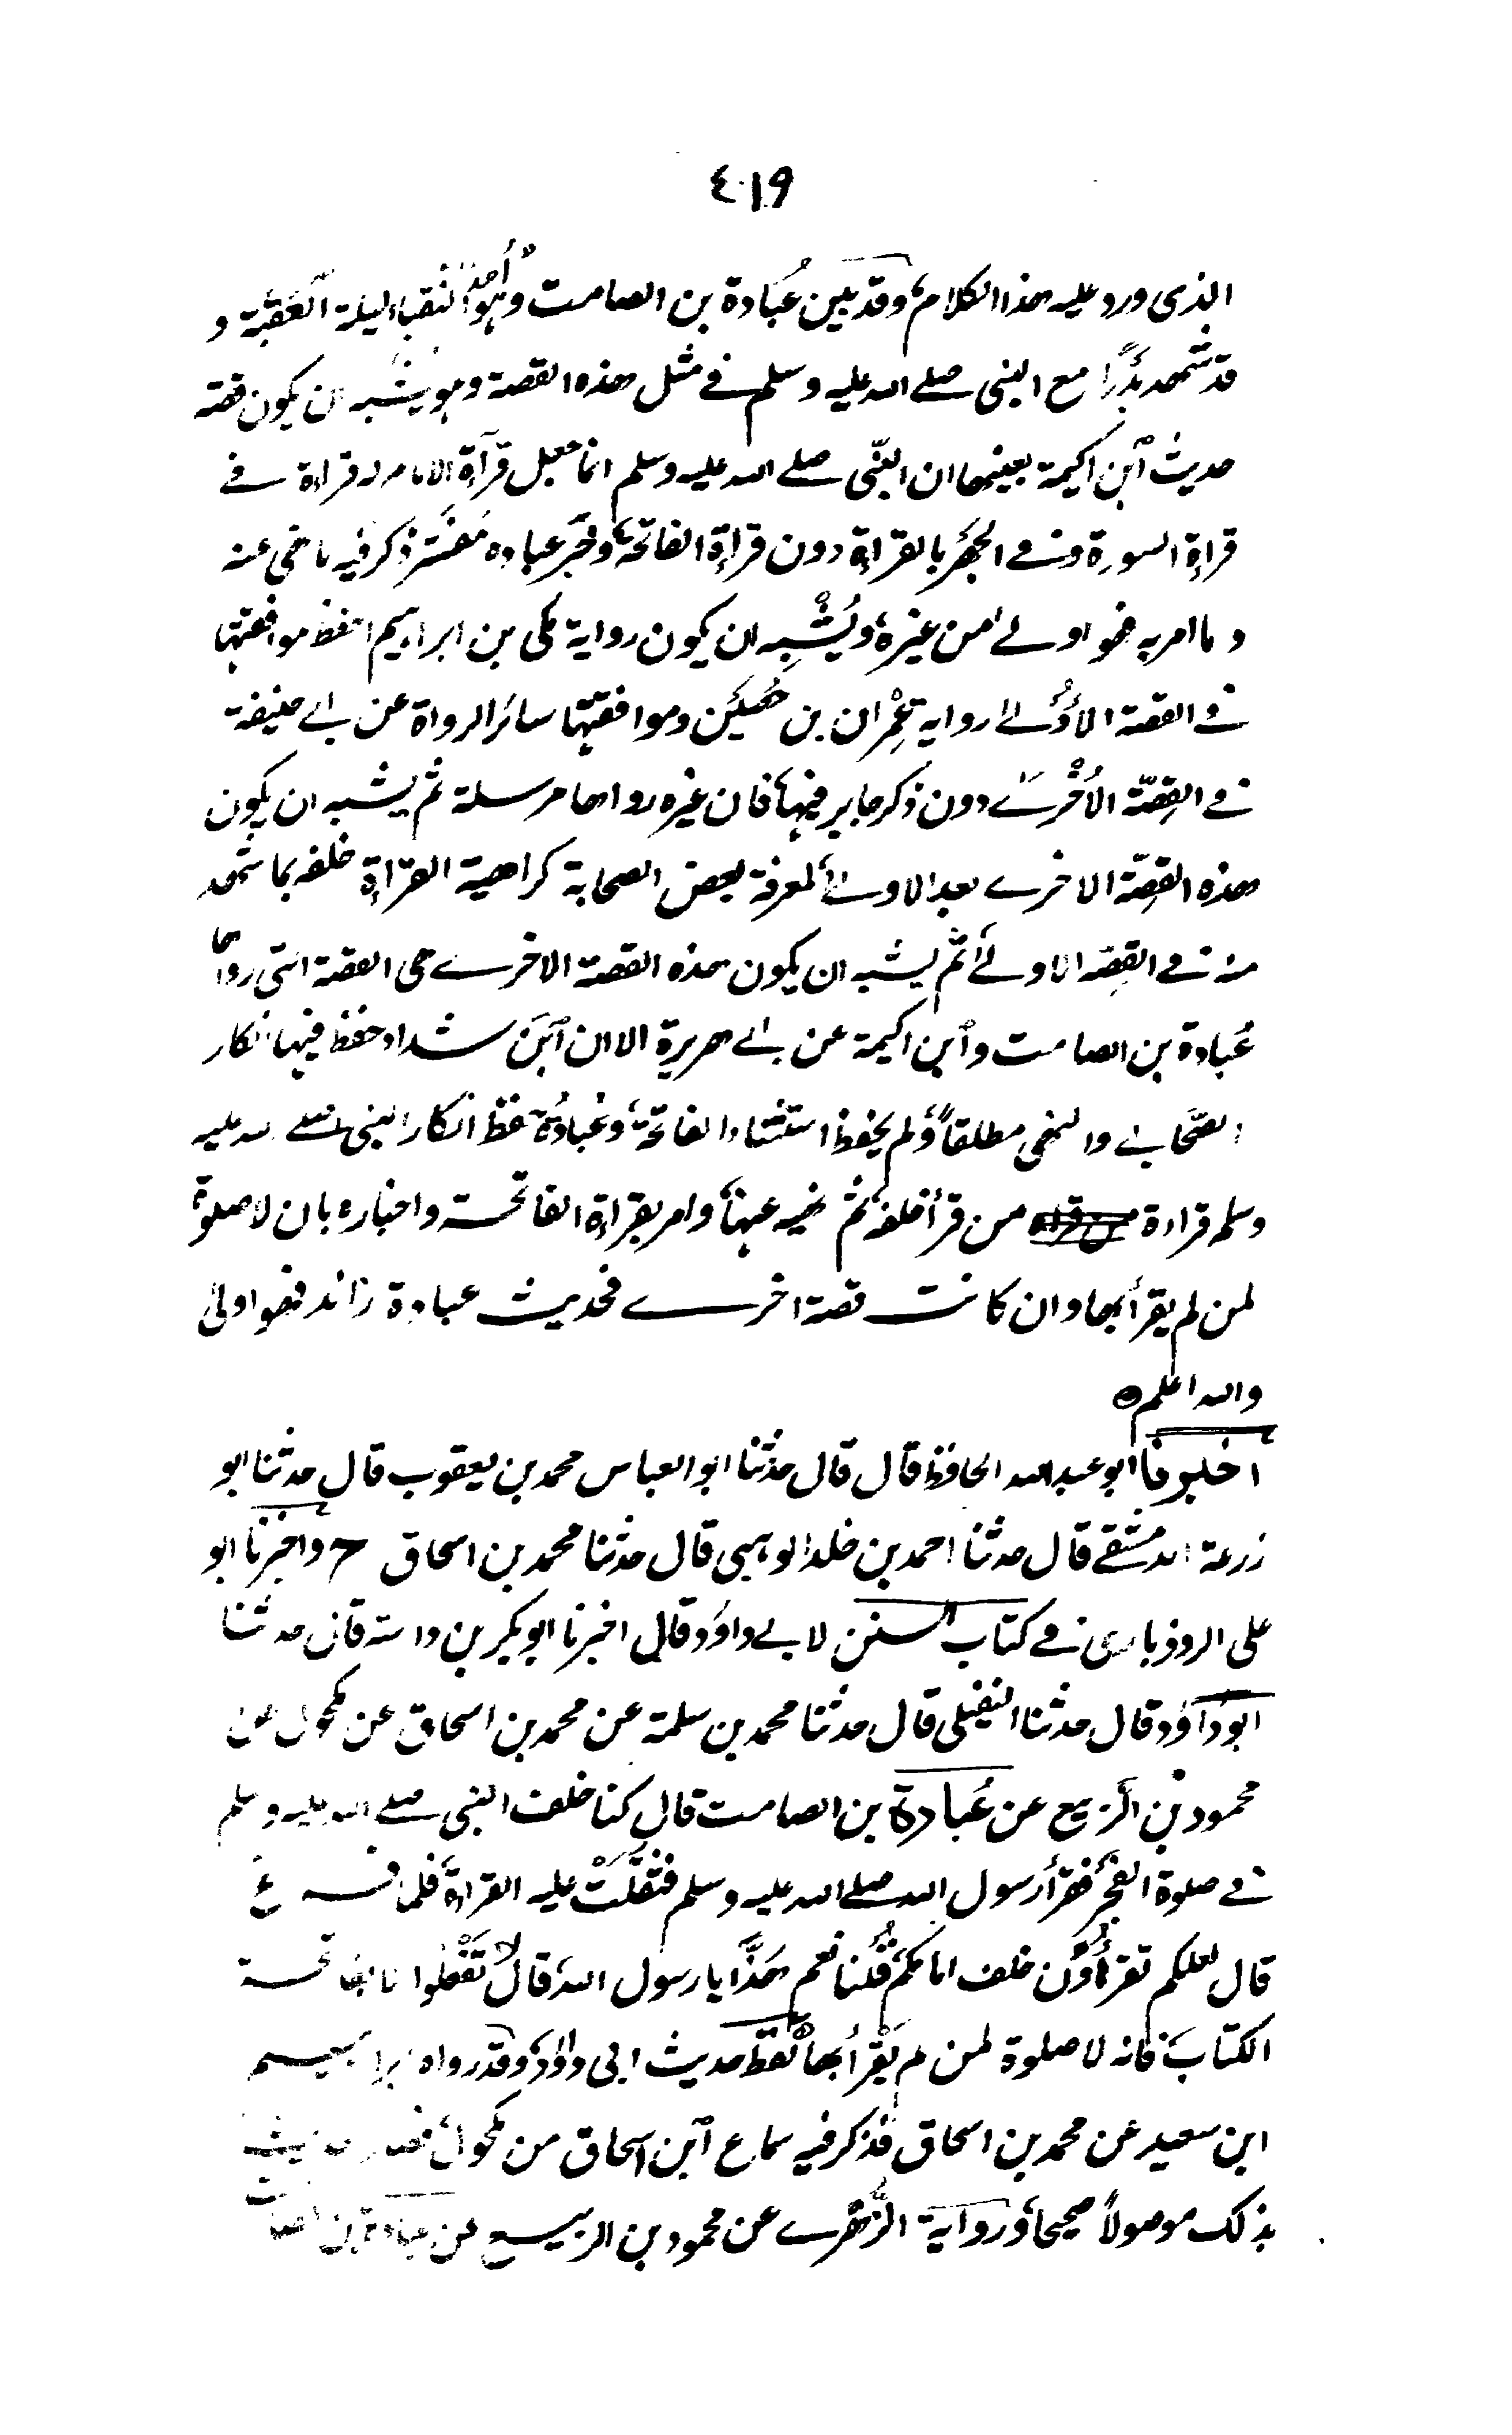 ٤١٩
الذى ورد عليه هذا الكلام، وقد بين عُبَادة بن الصامت وهو أحد النقباء ليلة العَقَبَة و
قد شهد بدرًا مع النبى صلے الله عليه وسلم فے مثل هذه القصة وهو يشبه ان يكون قصة
حديث ٱبن اكيمة بعينها ان النبّى صلے الله عليه وسلم انما جعل قرآءة الامام له قراءة فے
قراءة السورة وفے الجهر بالقراءة دون قراءة الفاتحة، وخبَر عباده مفسَّر ذكر فيه ما نهى عنه
وما امر به فهو اولے من غيره، ويُشْبِه ان يكون رواية مكى بن ابراهيم احفظ موافقتها
فے القصة الاُولے رواية عِمْران بن حُصَين وموافقتها سائر الرواة عن ابے حنيفة
فے القِصّة الاُخْرٰے دون ذكر جابر فيها، فان غيره رواها مرسلة ثم يشبه ان يكون
هذه القِصّة الاخرے بعد الاولےٰ لمعرفة بعض الصحابة كراهية القراءة خلفه بما شهد
منه فے القِصّه الاولےٰ ثم يشبه ان يكون هذه القصة الاخرے هى القصة التى رواها
عُبادة بن الصامت وٱبن اكيمة عن ابے هريرة الا ان ٱبنَ شداد حفظ فيها انكار
الصَّحابے والنهى مطلقاً، ولم يحفظ استثناء الفاتحة، وعُبادةُ حفظ انكار النبى صلے الله عليه
وسلم قراءة من قرأ خلفه ثم نهيه عنها، وامر بقراءة الفاتحة واخباره بان لا صلوة
لمن لم يقرأ بها وان كانت قصة اخرے فحديث عبادة زائد فهو اولى
والله اعلم ه
اخبرنا ابو عبد الله الحافظ قال قال حدثنا ابو العباس محمد بن يعقوب قال حدثنا ابو
زرعة الدمشقے قال حدثنا احمد بن خلد الوهبى قال حدثنا محمد بن اسحاق ح واخبرنا ابو
على الروذبارى فے كتاب السنن لابے داود قال اخبرنا ابو بكر بن داسة قال حدثنا
ابو داؤد قال حدثنا النفيلى قال حدثنا محمد بن سلمة عن محمد بن اسحاق عن مكحول عن
محمود بن الرَّبيع عن عُبادة بن الصامت قال كنا خلف النبى صلے الله عليه وسلم
فے صلوة الفجر فقرأ رسول الله صلے الله عليه وسلم فثقُلَتْ عليه القراءة، فلما فرغ
قال لعلكم تقرأُوْن خلف امامكم، قُلنا نعم هَذًّا يا رسول الله، قال لا تَفْعلوا الا بفاتحة
الكتاب، فانه لا صلوة لمن لم يقْرأ بها لفظ حديث ابى داؤد، وقد رواه ابراهيم
ابن سعيد عن محمد بن اسحاق فذكر فيه سماع ٱبن اسحاق من مكحول، فصار الحديث
بذلك موصولاً صحيحا، ورواية الزُّهْرے عن محمود بن الربيع عن عبادة بن الصامت